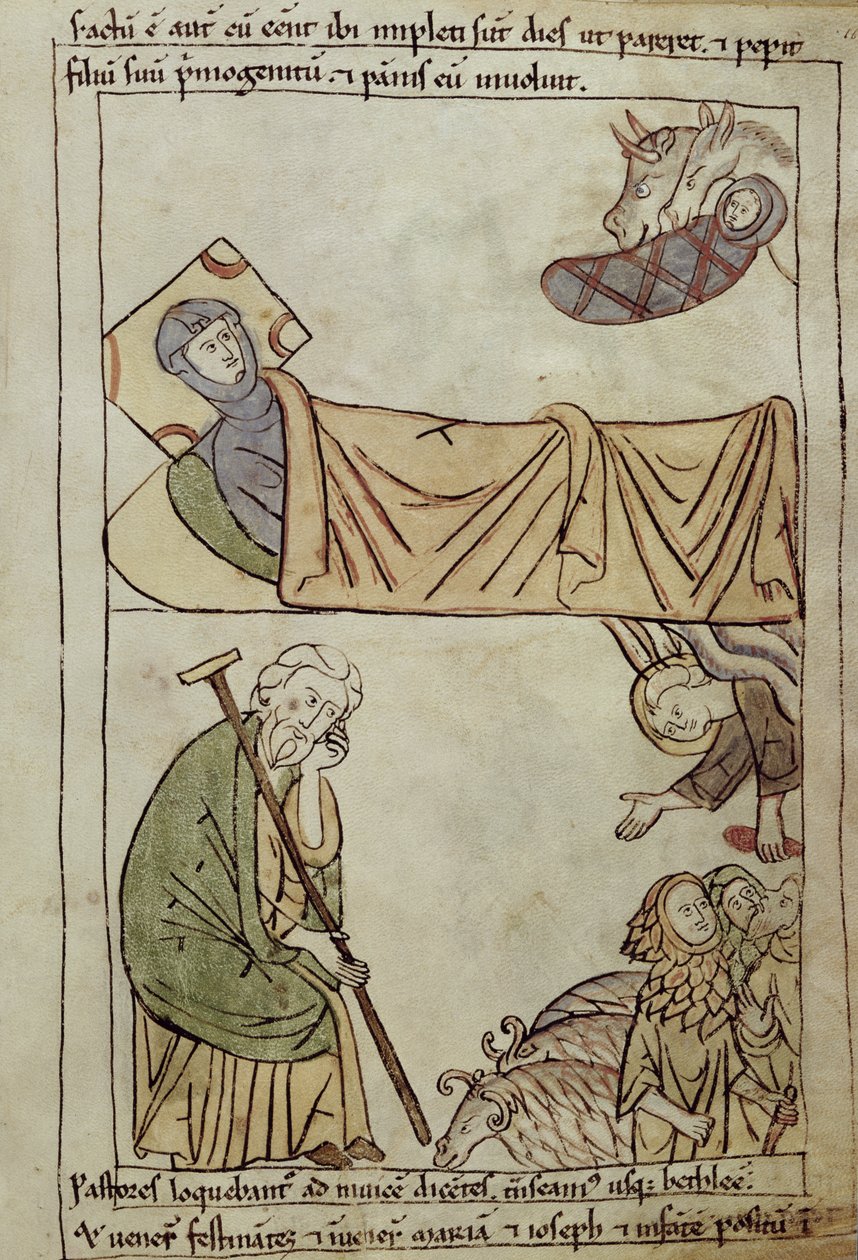 Factū ē aūt cū eēnt ibi impleti sūt dies ut pareret. ⁊ pepit
filiū suū p̄mogenitū. ⁊ pānis eū inuoluit.
Pastores loquebant᷑ ad inuicē dicētes. t̄nseam᷒ usq; bethleē.
⁊ uener̄ festinātes ⁊ īuener̄ mariā ⁊ ioseph ⁊ infātē positū ī